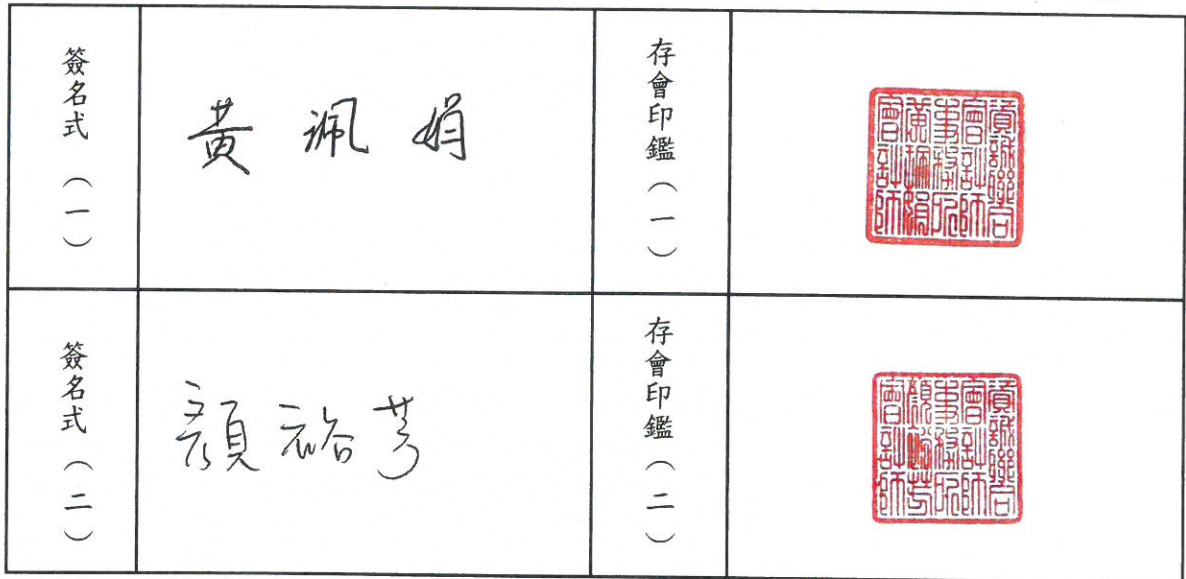 簽名式（一）
黃珮娟
存會印鑑（一）
資誠聯合
會計師
事務所
黃珮娟
會計師
簽名式（二）
顏裕芳
存會印鑑（二）
資誠聯合
會計師
事務所
顏裕芳
會計師